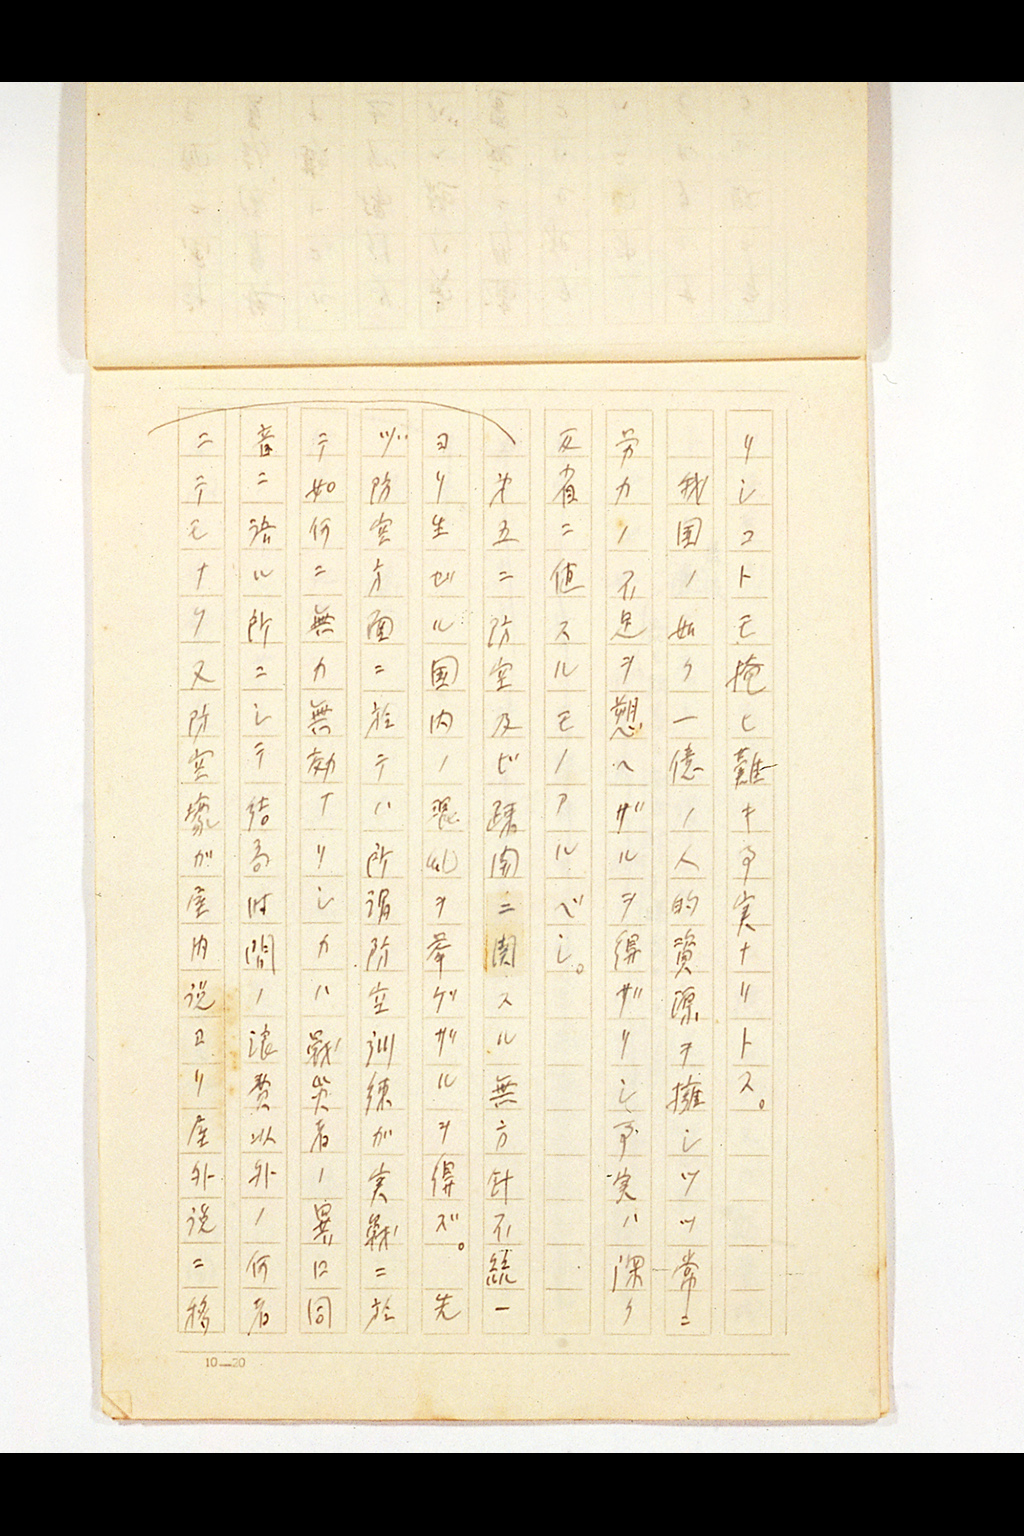 リシコトモ掩ヒ難キ事実ナリトス。
我国ノ如ク一億ノ人的資源ヲ擁シツツ常ニ
労力ノ不足ヲ愬ヘザルヲ得ザリシ事実ハ深ク
反省ニ値スルモノアルベシ。
第五ニ防空及ビ疎開ニ関スル無方針不統一
ヨリ生ゼル国内ノ混乱ヲ挙ゲザルヲ得ズ。先
ヅ防空方面ニ於テハ所謂防空訓練ガ実戦ニ於
テ如何ニ無力無効ナリシカハ戦災者ノ異口同
音ニ語ル所ニシテ結局時間ノ浪費以外ノ何者
ニテモナク又防空壕ガ屋内説ヨリ屋外説ニ移
10—20